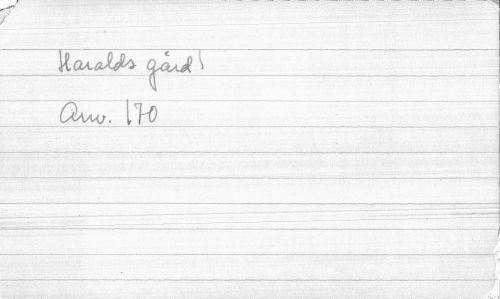 Haralds gård
Anv. 170